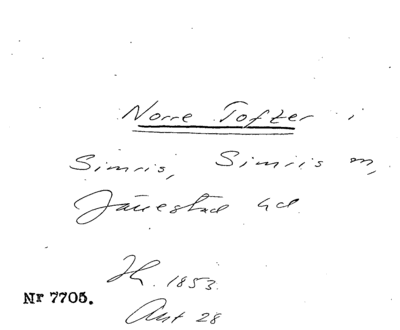 Norre Tofter i
Simris, Simris sn,
Järrestad hd
Jh. 1853.
Nr 7705.
Ant 28